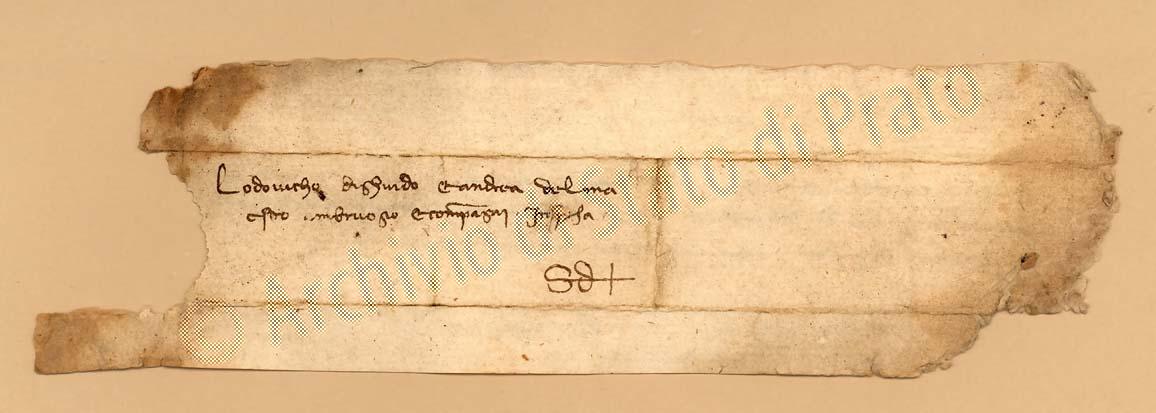 Lodovicho di Ghuido e Andrea del ma
estro Ambruogio e compagni in Pisa
Sd
© Archivio di Stato di Prato